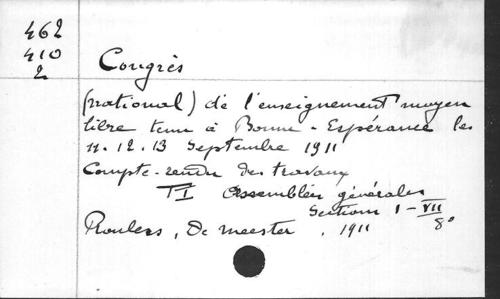 462
410
2
Congrès
(national) de l'enseignement moyen
libre tenu à Bonne-Espérance les
11. 12. 13 Septembre 1911
Compte-rendu des travaux
TI Assemblées générales
Sections 1-VII
8°
Roulers, De Meester, 1911